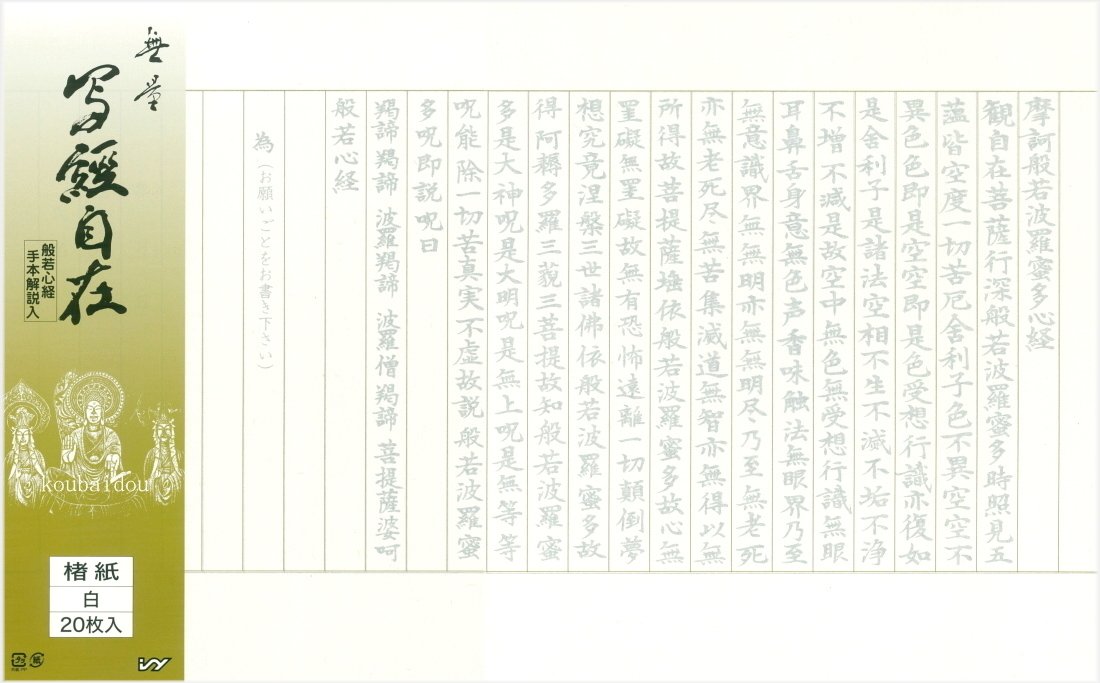 無量
写經自在
般若心経
手本解説入
koubaidou
楮紙
白
20枚入
紙
摩訶般若波羅蜜多心経
観自在菩薩行深般若波羅蜜多時照見五
蘊皆空度一切苦厄舎利子色不異空空不
異色色即是空空即是色受想行識亦復如
是舎利子是諸法空相不生不滅不垢不浄
不増不減是故空中無色無受想行識無眼
耳鼻舌身意無色声香味触法無眼界乃至
無意識界無無明亦無無明尽乃至無老死
亦無老死尽無苦集滅道無智亦無得以無
所得故菩提薩埵依般若波羅蜜多故心無
罣礙無罣礙故無有恐怖遠離一切顛倒夢
想究竟涅槃三世諸佛依般若波羅蜜多故
得阿耨多羅三藐三菩提故知般若波羅蜜
多是大神呪是大明呪是無上呪是無等等
呪能除一切苦真実不虚故説般若波羅蜜
多呪即説呪曰
羯諦 羯諦 波羅羯諦 波羅僧羯諦 菩提薩婆呵
般若心経
為(お願いごとをお書き下さい)